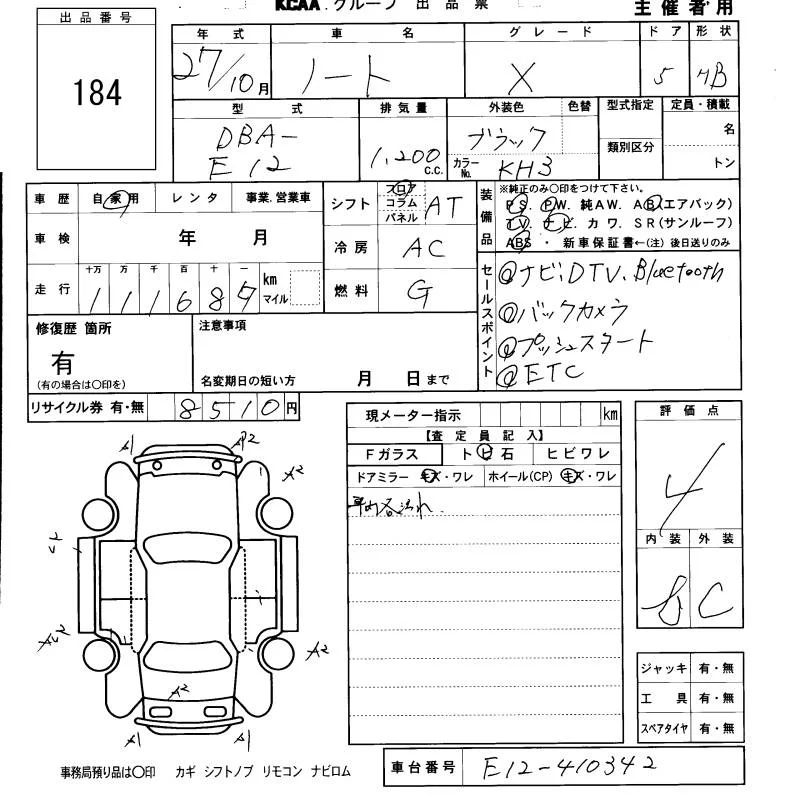 KCAA グループ 出品票 主催者用
出品番号
184
年式 車名 グレード ドア 形状
27/10月 ノート X 5 HB
型式 排気量 外装色 色替 型式指定 定員・積載
DBA-
E12 1,200 c.c. ブラック カラーNo. KH3 類別区分 名 トン
車歴 自家用 レンタ 事業.営業車
車検 年 月
走行 十万 万 千 百 十 一 km マイル
111689
シフト フロア コラム パネル AT
冷房 AC
燃料 G
装備品 ※純正のみ○印をつけて下さい。
PS. PW. 純AW. AB(エアバック)
TV. ナビ. カワ. SR(サンルーフ)
ABS ・ 新車保証書←(注)後日送りのみ
セールスポイント
ナビ、DTV、Bluetooth
バックカメラ
プッシュスタート
ETC
修復歴 箇所
有
(有の場合は○印を)
注意事項
名変期日の短い方 月 日まで
リサイクル券 有・無 8510円
現メーター指示 km
【査定員記入】
Fガラス トビ石 ヒビワレ
ドアミラー キズ・ワレ ホイール(CP) キズ・ワレ
車内各汚れ.
評価点
4
内装 外装
C
A1 A2
A2
A2
A2
A1 A1
ジャッキ 有・無
工具 有・無
スペアタイヤ 有・無
車台番号 E12-410342
事務局預り品は○印 カギ シフトノブ リモコン ナビロム